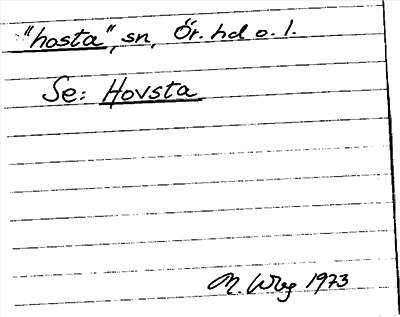 "hosta", sn, Ör. hd o. l.
Se: Hovsta
M. Wbg 1973